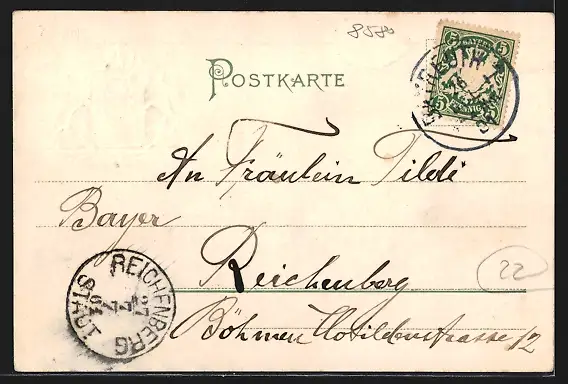 8580
POSTKARTE
5 BAYERN 5
5 PFENNIG 5
BAYREUTH 1
An Fräulein Tilde
Bayer
Reichenberg
22
Böhmen Clotildenstrasse 12
REICHENBERG
STADT
27
7